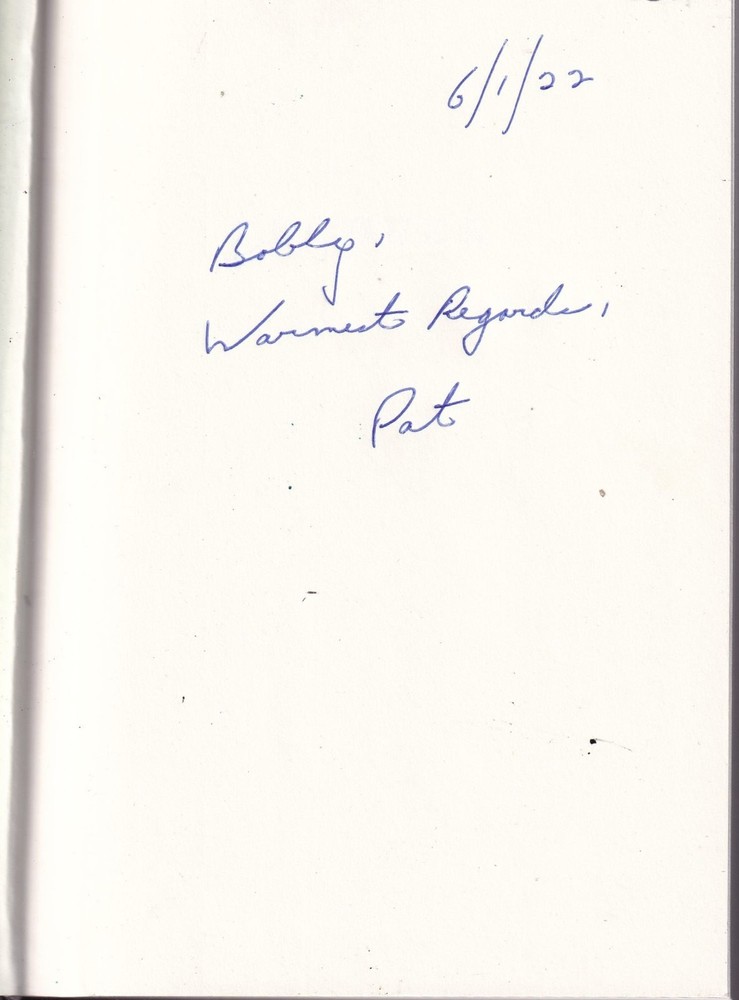 6/1/22
Bobby,
Warmest Regards,
Pat